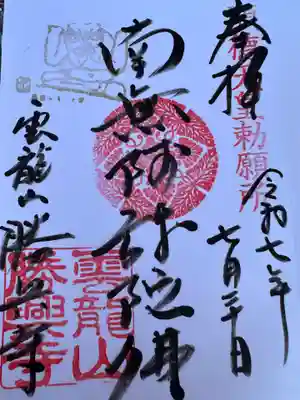 奉拝
徳天皇勅願所
令和七年
七月三十日
南無阿弥陀佛
雲龍山勝興寺
雲龍山
勝興寺